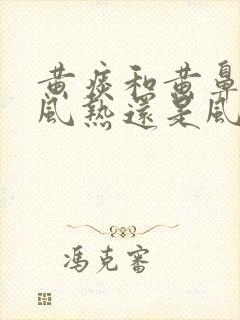 黄痰和黄鼻
風熱還是風
馮克審